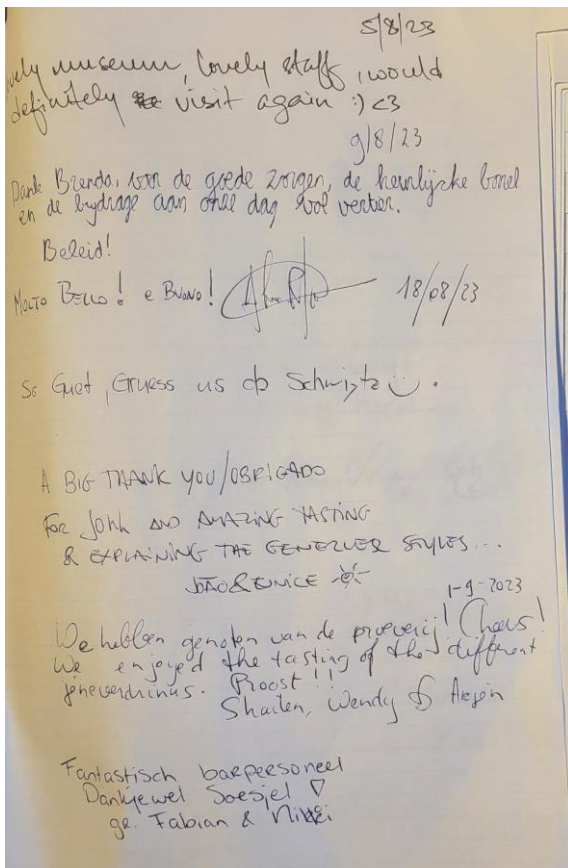 5/8/23
vely museum, lovely staff, would
definitely visit again :) <3
9/8/23
Dank Brenda, voor de goede zorgen, de heerlijke borrel
en de bijdrage aan onze dag vol vertier.
Beleid!
MOLTO BELLO! e BUONO! 18/08/23
So Guet, Gruess us dö Schwiiz
A BIG THANK YOU/OBRIGADO
FOR JOHN AND AMAZING TASTING
& EXPLAINING THE GENEVER STYLES...
JOÃO & EUNICE
1-9-2023
We hebben genoten van de proeverij! Cheers!
We enjoyed the tasting of the different
jeneverdrinks. Proost!!
Wendy & Arjen
Fantastisch barpersoneel
Dankjewel Soesjel
gr. Fabian & Nikki